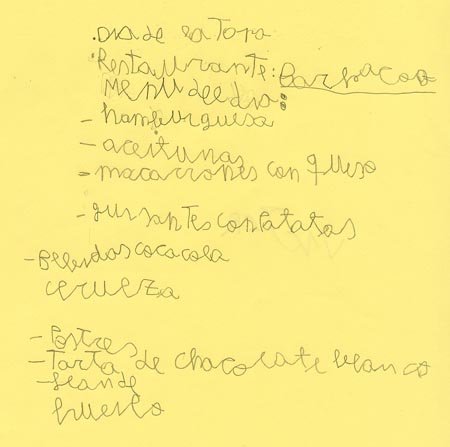 .Dia de la Tora
.Restaurante: Barbacoa
Menu deedia:
- hamburguesa
- aceitunas
- macarrones con queso
- guisantes con Patatas
- Bebidas cocacola
cerueza
- Postres
- Tarta de chacolate blanco
- flande
huevo